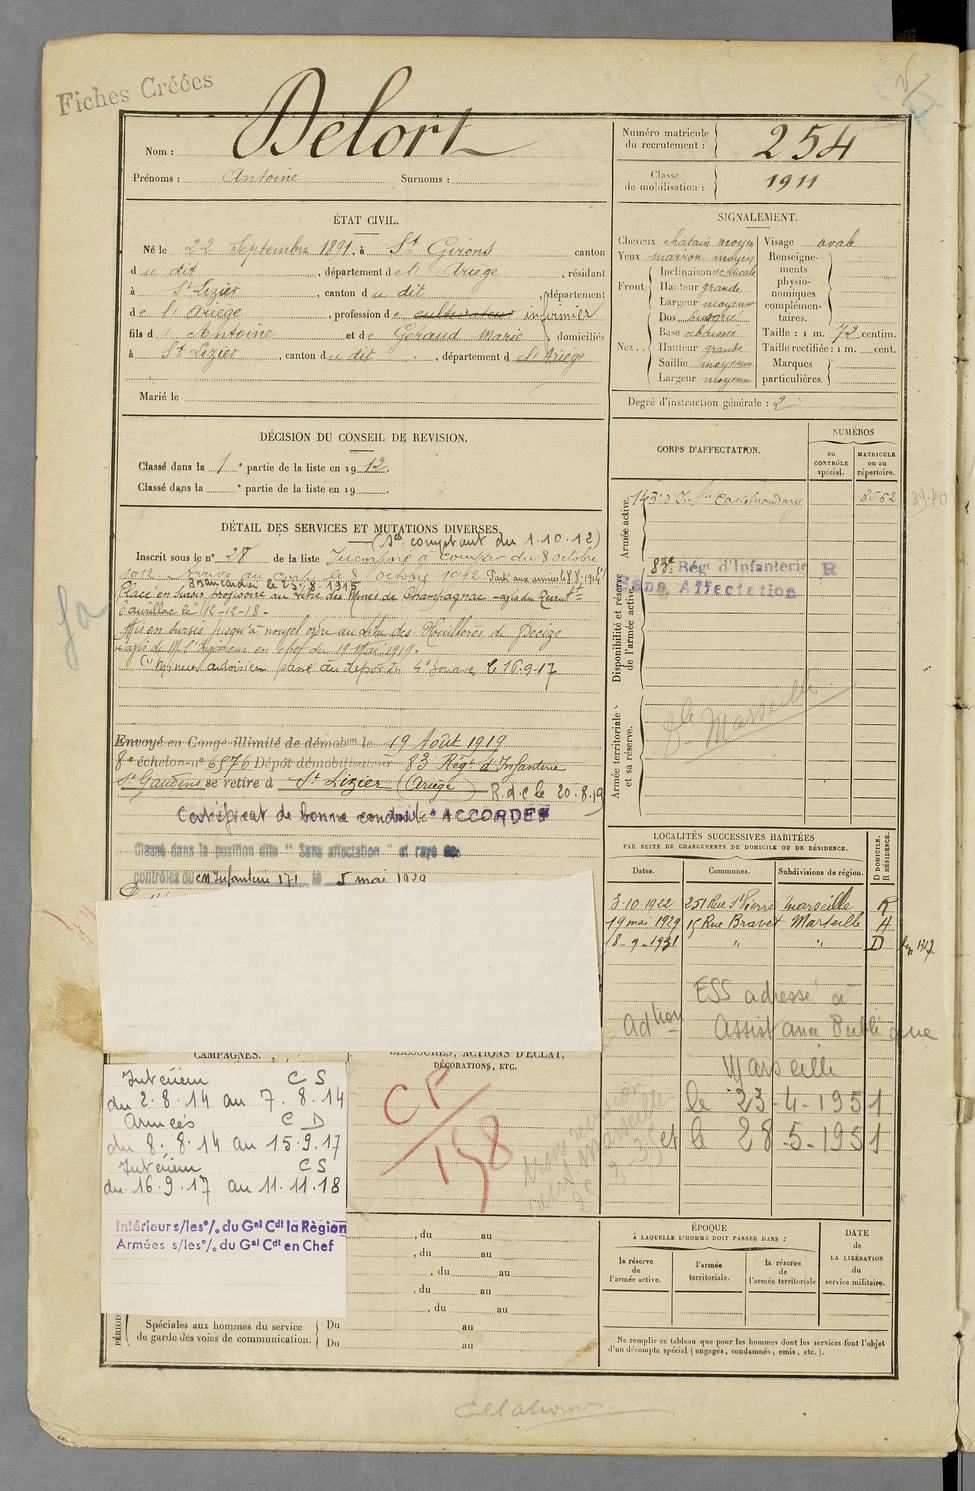 Fiches Créées
Nom : Delort
Prénoms : Antoine Surnoms :
Numéro matricule du recrutement : 254
Classe de mobilisation : 1911
ÉTAT CIVIL.
Né le 22 Septembre 1891, à St Girons canton
du dit, département de l'Ariège, résidant
à St Lizier, canton du dit, département
de l'Ariège, profession de cultivateur infirmier
fils d'Antoine et de Géraud Marie, domiciliés
à St Lizier, canton du dit, département de l'Ariège
Marié le
SIGNALEMENT.
Cheveux chatain moyen
Yeux marron moyen
Front. Inclinaison verticale
Hauteur grande
Largeur moyenne
Nez.. Dos busqué
Base abaissée
Hauteur grande
Saillie moyenne
Largeur moyenne
Visage ovale
Renseignements physionomiques complémentaires.
Taille : 1 m. 72 centim.
Taille rectifiée : 1 m. cent.
Marques particulières.
Degré d'instruction générale : 2
DÉCISION DU CONSEIL DE REVISION.
Classé dans la 1e partie de la liste en 1912.
Classé dans la e partie de la liste en 19 .
DÉTAIL DES SERVICES ET MUTATIONS DIVERSES.
(Ses comptant du 1.10.12)
Inscrit sous le n° 28 de la liste Incorporé à compter du 8 octobre
1912. Arrivé au corps le 8 Octobre 1912 Parti aux armées le 8.8.1914 (1)
Brancardier le 27.8.1915
Placé en sursis provisoire au titre des Mines de Champagnac
d'Aurillac le 12-12-18.
Mis en sursis jusqu'à nouvel ordre au titre des Houillères de Decize
avis de Mr l'Ingénieur en chef du 19 Mai 1919.
passé au dépôt du 4e Zouaves le 16.9.17
Envoyé en Congé illimité de démobon le 19 Août 1919
8e échelon n° 6576 Dépôt démobilisateur 83 Régt d'Infanterie
St Gaudens se retire à St Lizier (Ariège) R.d.c le 20.8.19
Certificat de bonne conduite "ACCORDÉ"
Classé dans la position dite "Sans affectation" et rayé des
contrôles du CM Infanterie 171 le 5 mai 1929
CORPS D'AFFECTATION.
NUMÉROS
au CONTRÔLE spécial.
MATRICULE ou au répertoire.
Armée active.
143e D'Infie Castelnaudary 3552
39-40
Disponibilité et réserve de l'armée active.
83e Régt d'Infanterie R
Sans Affectation
Armée territoriale et sa réserve.
Marseille
LOCALITÉS SUCCESSIVES HABITÉES
PAR SUITE DE CHANGEMENTS DE DOMICILE OU DE RÉSIDENCE.
Dates. Communes. Subdivisions de région. D DOMICILE. R RÉSIDENCE.
3-10-1922 251 Rue St Pierre Marseille R
19 mai 1929 15 Rue Bravet Marseille A
18-9-1931 " " D
ESS adressé à
Adhon Assistance Publique
Marseille
le 23-4-1951
et le 28-5-1951
CAMPAGNES.
BLESSURES, ACTIONS D'ÉCLAT,
DÉCORATIONS, ETC.
Intérieur CS
du 2.8.14 au 7.8.14
Armées CD
du 8.8.14 au 15.9.17
Intérieur CS
du 16.9.17 au 11.11.18
Intérieur s/les % du Gal Cdt la Région
Armées s/les % du Gal Cdt en Chef
CP/158
, du au
, du au
, du au
, du au
, du au
PÉRIOD
Spéciales aux hommes du service de garde des voies de communication.
Du au
Du au
ÉPOQUE
À LAQUELLE L'HOMME DOIT PASSER DANS :
la réserve de l'armée active.
l'armée territoriale.
la réserve de l'armée territoriale
DATE de LA LIBÉRATION du service militaire.
Ne remplir ce tableau que pour les hommes dont les services font l'objet
d'un décompte spécial (engagés, condamnés, omis, etc.).